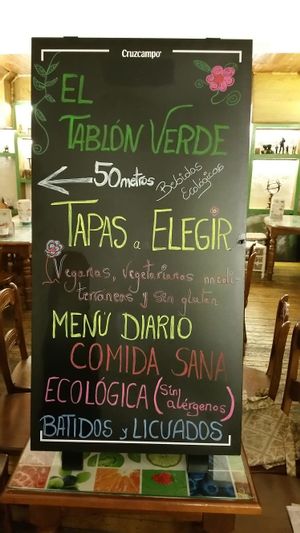 Cruzcampo
EL
TABLÓN VERDE
50 metros
Bebidas
Ecológicas
TAPAS a ELEGIR
Veganas, vegetarianas medi-
terráneas y sin gluten
MENÚ DIARIO
COMIDA SANA
ECOLÓGICA (sin
alérgenos)
BATIDOS y LICUADOS